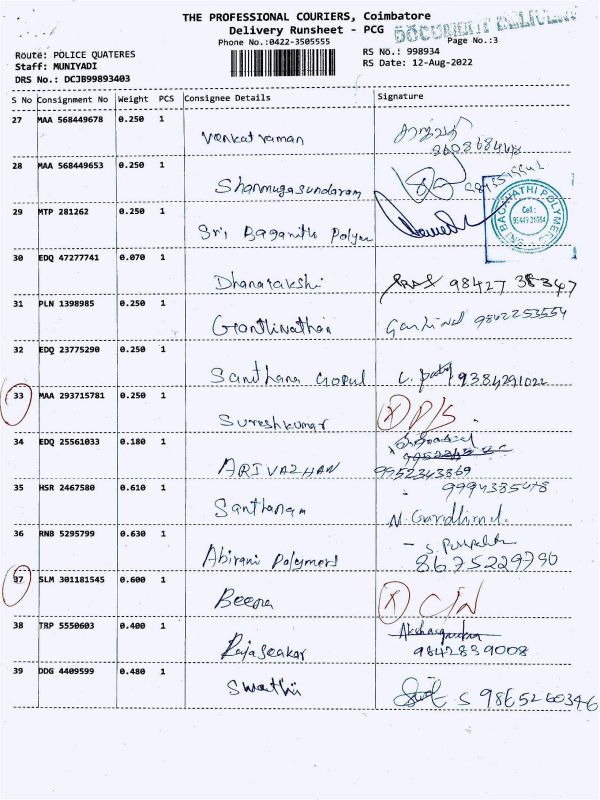 THE PROFESSIONAL COURIERS, Coimbatore
Delivery Runsheet - PCG
DOCUMENT DELIVERY
Phone No.:0422-3505555
Page No.:3
Route: POLICE QUATERES
RS No.: 998934
Staff: MUNIYADI
RS Date: 12-Aug-2022
DRS No.: DCJB99893403
S No Consignment No Weight PCS Consignee Details Signature
27 MAA 568449678 0.250 1
Venkatraman
28 MAA 568449653 0.250 1
Shanmugasundaram
29 MTP 281262 0.250 1
Sri Baganithi Polymer
SRI BAGAVATHI POLYMERS
Cell :
30 EDQ 47277741 0.070 1
Dhanarakshi 98427 38347
31 PLN 1398985 0.250 1
Gonthinathan 9842253554
32 EDQ 23775290 0.250 1
Santhana Gopul 9384291022
33 MAA 293715781 0.250 1
Sureshkumar X D/S
34 EDQ 25561033 0.180 1
ARIVAZHAN 9952343869
35 HSR 2467580 0.610 1
9994385478
Santhanam
36 RNB 5295799 0.630 1
Abirami Polymers 8675229790
37 SLM 301181545 0.600 1
Beena X C/N
38 TRP 5550603 0.400 1
Rajaseakar 9842839008
39 DDG 4409599 0.480 1
Swathi S 9865260346